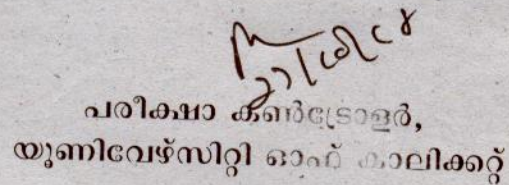 പരീക്ഷാ കൺട്രോളർ,
യൂണിവേഴ്സിറ്റി ഓഫ് കാലിക്കറ്റ്